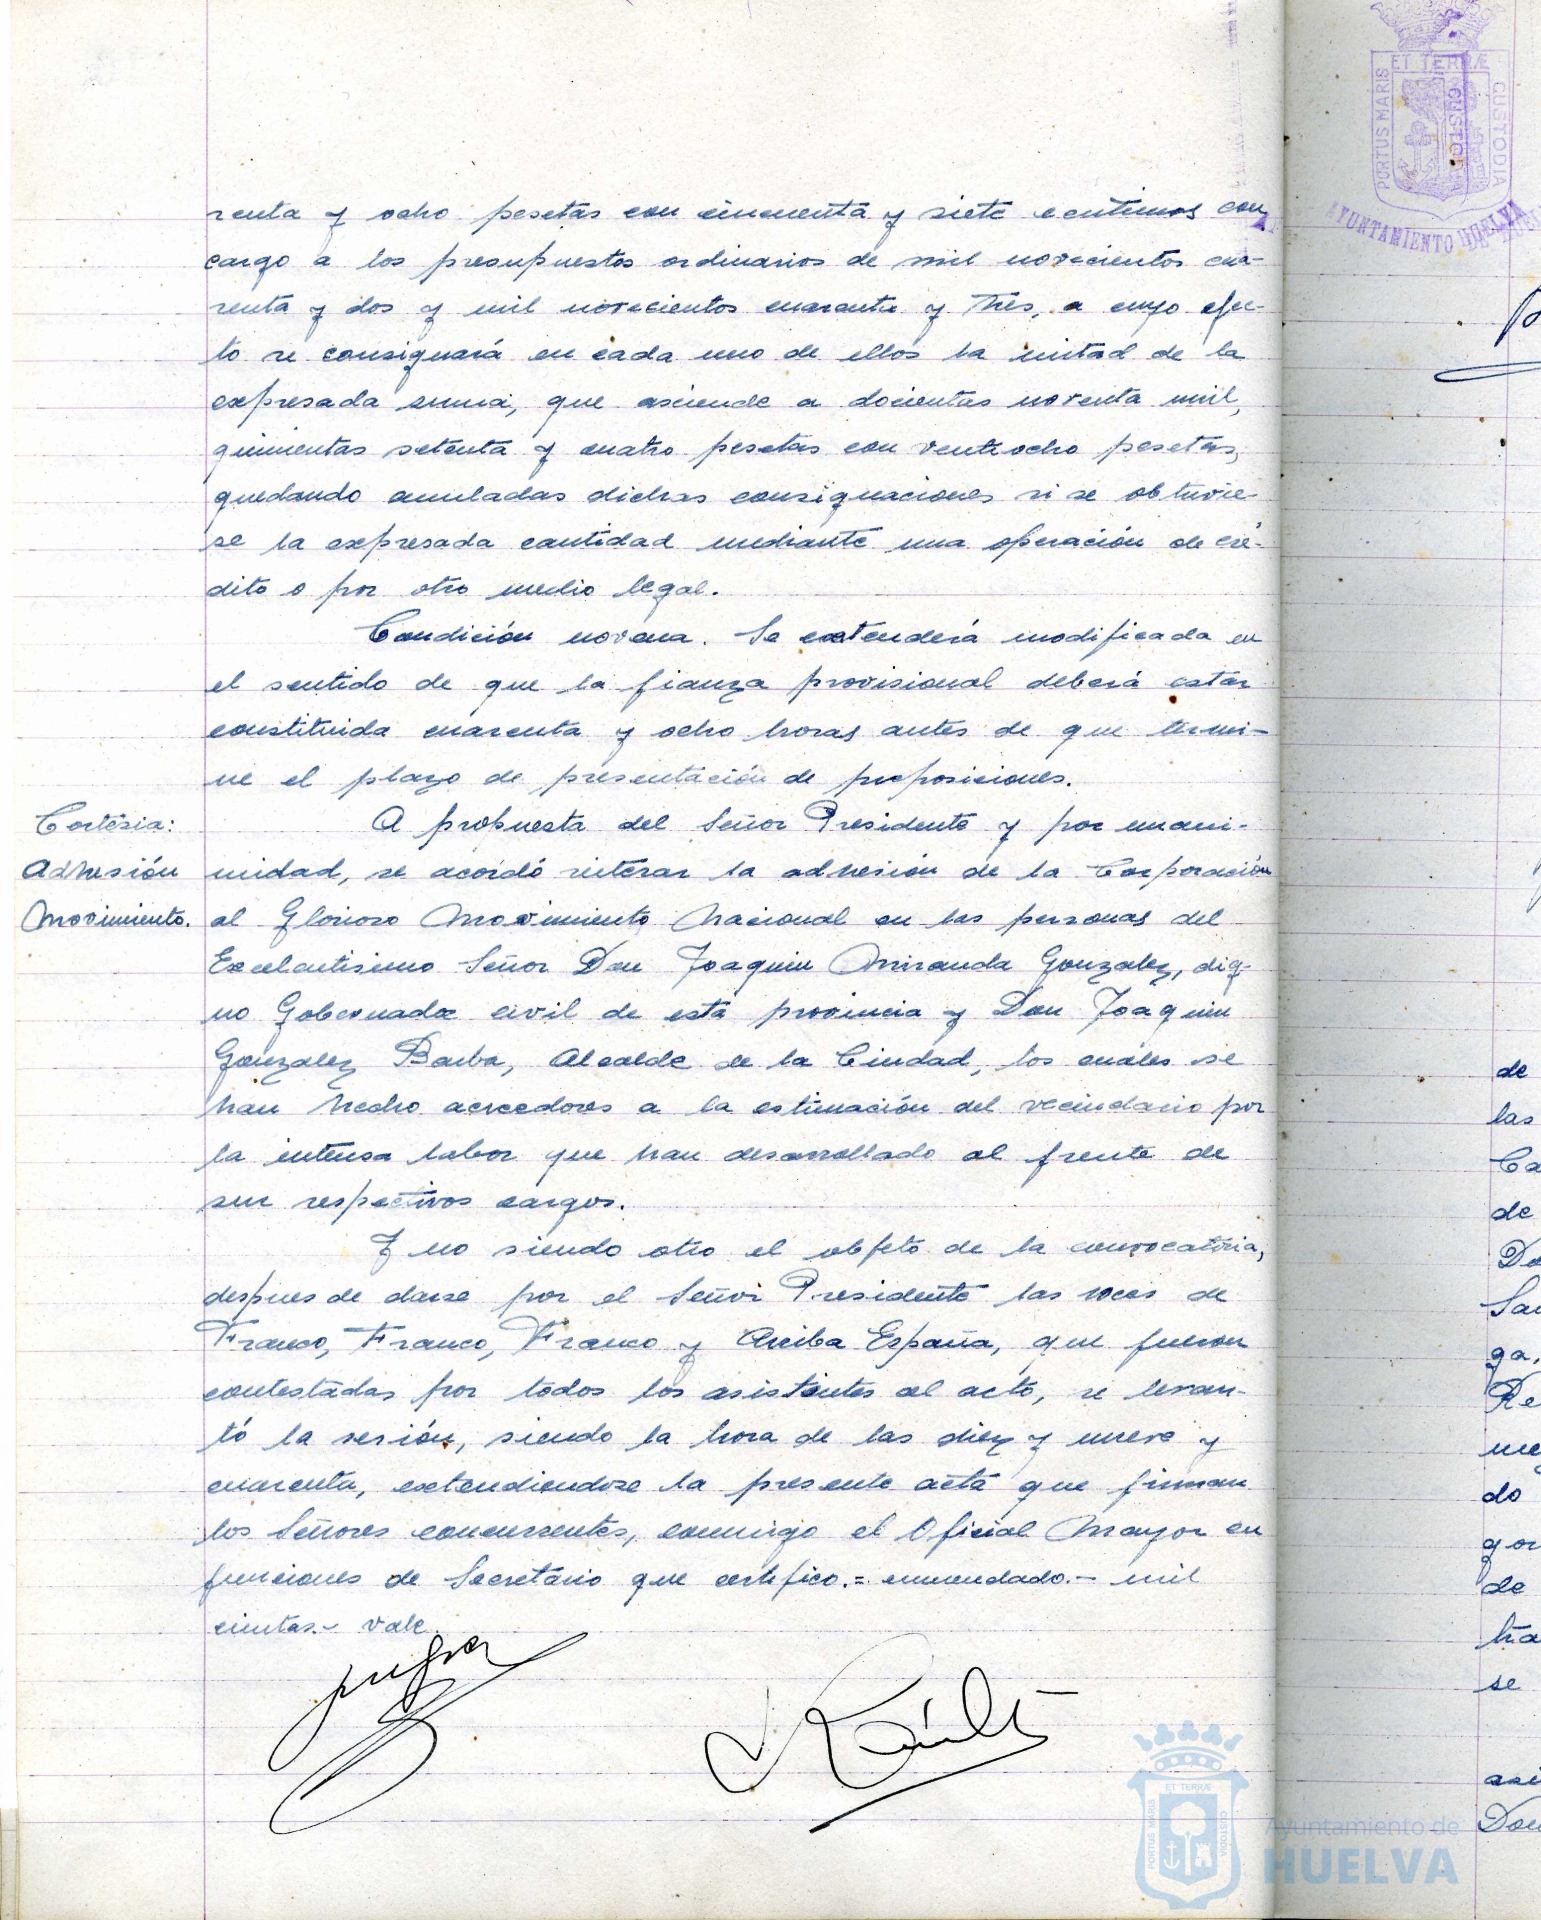 renta y ocho pesetas con cincuenta y siete centimos con
cargo a los presupuestos ordinarios de mil novecientos cua-
renta y dos y mil novecientos cuarenta y tres, a cuyo efec-
to se consignará en cada uno de ellos la mitad de la
expresada suma, que asciende a docientas noventa mil,
quinientas setenta y cuatro pesetas con ventiocho pesetas,
quedando anuladas dichas consignaciones si se obtuvie-
se la expresada cantidad mediante una operación de cré-
dito o por otro medio legal.
Condición novena. Se entenderá modificada en
el sentido de que la fianza provisional deberá estar
constituida cuarenta y ocho horas antes de que termi-
ne el plazo de presentación de proposiciones.
Cortesia:
Adhesión
Movimiento.
A propuesta del Señor Presidente y por unani-
midad, se acordó reiterar la adhesión de la Corporación
al Glorioso Movimiento Nacional en las personas del
Excelentisimo Señor Don Joaquin Miranda Gonzalez, dig-
no Gobernador civil de esta provincia y Don Joaquin
Gonzalez Barba, Alcalde de la Ciudad, los cuales se
han hecho acreedores a la estimación del vecindario por
la intensa labor que han desarrollado al frente de
sus respectivos cargos.
Y no siendo otro el objeto de la convocatoria,
despues de darse por el Señor Presidente las voces de
Franco, Franco, Franco y Arriba España, que fueron
contestadas por todos los asistentes al acto, se levan-
tó la sesión, siendo la hora de las diez y nueve y
cuarenta, extendiendose la presente acta que firman
los Señores concurrentes, conmigo el Oficial Mayor en
funciones de Secretario que certifico.= enmendado.- mil
cientas.- vale.
ET TERRÆ
PORTUS MARIS
CUSTODIA
AYUNTAMIENTO
HUELVA
de
las
Ca
de
Do
Sa
ga,
Re
do
de
se
asi
Don
ET TERRÆ
PORTUS MARIS
CUSTODIA
Ayuntamiento de
HUELVA